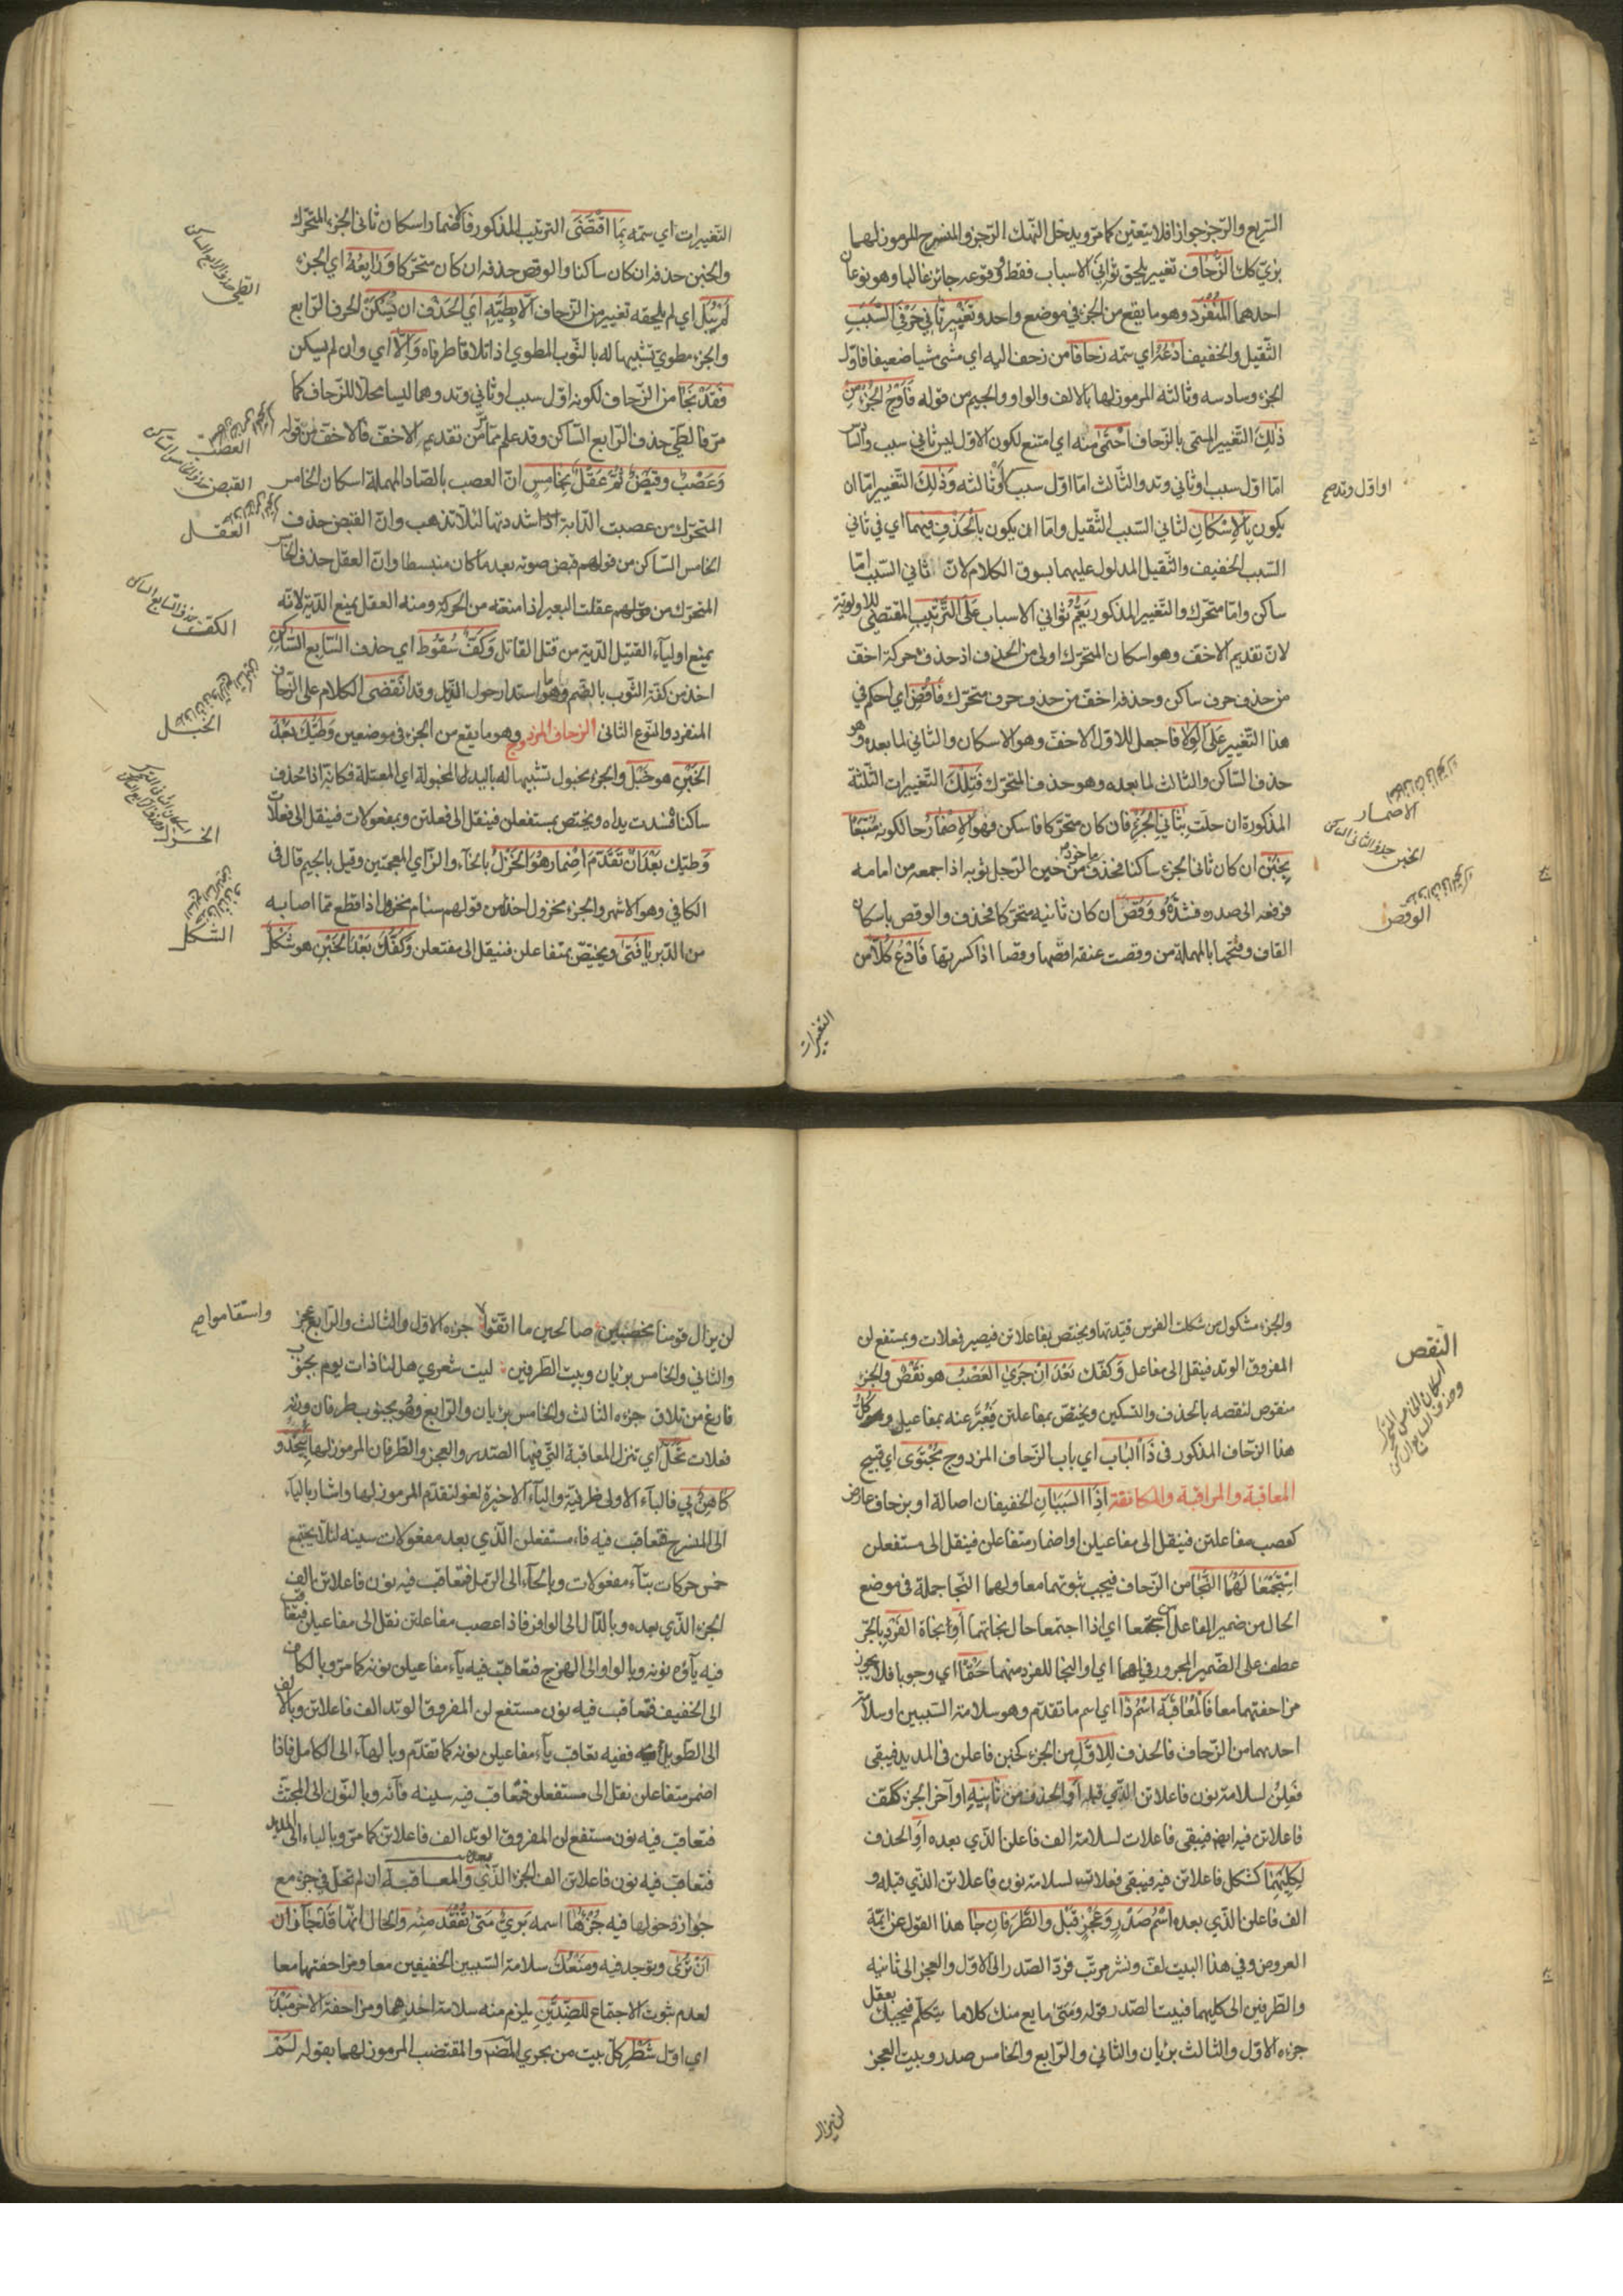 السريع والرّجز جوازا فلا يتعين كما مرّ ويدخل النهك الرّجز والمنسرح المرموز لهما
بزيّ كك الزّحاف تغيير يلحق ثواني الاسباب فقط وقوعه جائز غالبا وهو نوعان
احدهما المنفرد وهو ما يقع من الجزء في موضع واحد وتغيير ثاني حرفي السّبب
الثّقيل والخفيف ادعه اي سمّه زحافا من زحف اليه اي مشى مشيا ضعيفا فاوّل
الجزء وسادسه وثالثه المرموز لها بالالف والواو والجيم من قوله فاوج الجزء من
ذلك التّغيير المسمّى بالزّحاف احتمى منه اي امتنع لكون الاوّل ليس ثاني سبب والسّادس
امّا اوّل سبب او ثاني وتد والثّالث امّا اوّل سبب او ثالثه وذلك التّغيير امّا ان
او اوّل وتد صح
يكون بالاسكان لثاني السّبب الثّقيل وامّا ان يكون بالحذف فيهما اي في ثاني
السّبب الخفيف والثّقيل المدلول عليهما بسوق الكلام لانّ ثاني السّبب امّا
ساكن وامّا متحرّك والتّغيير المذكور يعمّ ثواني الاسباب على الترتيب المقتضي للاولويّة
لانّ تقديم الاخفّ وهو اسكان المتحرّك اولى من الحذف اذ حذف حركة اخفّ
من حذف حرف ساكن وحذفه اخفّ من حذف حرف متحرّك فاقض اي احكم في
هذا التّغيير على الولا فاجعل للاوّل الاخفّ وهو الاسكان والثاني لما بعده وهو
حذف السّاكن والثالث لما بعده وهو حذف المتحرّك فتلك التّغييرات الثّلثة
المذكورة ان حلّت بثاني الجزء فان كان متحرّكا فاسكن فهو الاضمار حالكونه متبعا
الاضمار
يخبن ان كان ثاني الجزء ساكنا فحذف ماخوذ من خبن الرّجل ثوبه اذا جمعه من امامه
الخبن حذف الثاني الساكن
فرفعه الى صدره فشدّه ووقص ان كان ثانيه متحرّكا فحذف والوقص باسكان
الوقص
القاف وفتحها بالمهملة من وقصت عنقه اقصها وقصا اذا كسرتها فادع كلّا من
التغييرات
التّغييرات اي سمّه بما اقتضى الترتيب المذكور فالاضمار اسكان ثاني الجزء المتحرّك
والخبن حذفه ان كان ساكنا والوقص حذفه ان كان متحرّكا ورابعه اي الجزء
الطي حذف الرابع الساكن
لم يبل اي لم يلحقه تغيير من الزّحاف الّا بطيّه اي الحذف ان يسكن الحرف الرّابع
والجزء مطويّ تشبيها له بالثّوب المطوي اذا تلاقا طرفاه والّا اي وان لم يسكن
فقد نجا من الزّحاف لكونه اوّل سبب او ثاني وتد وهما ليسا محلّا للزّحاف كما
مرّ فالطّي حذف الرّابع السّاكن وقد علم ممّا مرّ من تقديم الاخفّ فالاخفّ من قوله
العصب
وعصب وقبض ثمّ عقل بخامس انّ العصب بالصّاد المهملة اسكان الخامس
القبض حذف الخامس الساكن
المتحرّك من عصبت الدّابة اذا شددتها لئلّا تذهب وانّ القبض حذف
العقل
الخامس السّاكن من قولهم قبض صوته بعد ما كان منبسطا وانّ العقل حذف الخامس
المتحرّك من قولهم عقلت البعير اذا منعته من الحركة ومنه العقل يمنع الدّية لانّه
الكفّ حذف السابع الساكن
يمنع اولياء القتيل الدّية من قتل القاتل وكفّ سقوط اي حذف السّابع السّاكن
اخذ من كفّة الثّوب بالضّم وهو استدار حول الذّيل وقد انقضى الكلام على الزّحاف
المنفرد والنّوع الثاني الزحاف المزدوج وهو ما يقع من الجزء في موضعين وطيّك بعد
الخبل
الخبن هو خبل والجزء مخبول تشبيها له باليد المخبولة اي المعتلة فكانه اذا حذف
ساكناه شدت يداه ويختص بمستفعلن فينقل الى فعلتن وبمفعولات فينقل الى فعلات
الخزل
وطيّك بعد ان تقدّم اضمار هو الخزل بالخاء والزّاي المعجمتين وقيل بالجيم قال في
الكافي وهو الاشهر والجزء مخزول اخذا من قولهم سنام مخزول اذا قطع لما اصابه
من الدّبر يا فتى ويختصّ بمتفاعلن فينقل الى مفتعلن وكفّك بعد الخبن هو شكل
الشكل
والجزء مشكول من شكلت الفرس قيّدتها ويختص بفاعلاتن فيصير فعلات وبمستفع لن
النقص
اسكان الخامس المتحرك وحذف السابع الساكن
المفروق الوتد فينقل الى مفاعل وكفّك بعد ان جرى العصب هو نقص والجزء
منقوص لنقصه بالحذف والتسكين ويختصّ بمفاعلتن فيعبّر عنه بمفاعيل وكلّ
هذا الزحاف المذكور في ذا الباب اي باب الزّحاف المزدوج مجتوى اي قبيح
المعاقبة والمراقبة والمكانفة اذا السّببان الخفيفان اصالة او بزحاف عارض
كعصب مفاعلتن فينقل الى مفاعيلن او اضمار متفاعلن فينقل الى مستفعلن
استجمعا لهما النّجا من الزّحاف فيجب ثبوتهما معا ولهما النّجا جملة في موضع
الحال من ضمير الفاعل استجمعا اي اذا اجتمعا حال نجاتهما او نجاة الفرد بالجرّ
عطف على الضّمير المجرور في لهما اي او النجا للفرد منهما حقّا اي وجوبا فلا يجوز
مزاحفتهما معا فالمعاقبة اسم ذا اي اسم ما تقدّم وهو سلامة السّببين او سلامة
احدهما من الزّحاف فالحذف للاوّل من الجزء كخبن فاعلن في المديد فيبقى
فعلن لسلامة نون فاعلاتن الذي قبله او الحذف من ثانيه او آخر الجزء ككفّ
فاعلاتن فيه ايضا فيبقى فاعلات لسلامة الف فاعلن الذّي بعده او الحذف
لكليهما كشكل فاعلاتن فيه فيبقى فعلات لسلامة نون فاعلاتن الذّي قبله و
الف فاعلن الذّي بعده اسم صدر وعجز قبل والطّرفان جا هذا القول عن ائمّة
العروض وفي هذا البيت لفّ ونشر مرتّب فردّ الصّدر الى الاوّل والعجز الى ثانيه
والطّرفين الى كليهما فبيت الصّدر قوله ومتى ما يع منك كلاما يتكلّم فيجبك بعقل
جزءه الاوّل والثالث بريان والثاني والرّابع والخامس صدر وبيت العجز
لن يزال
لن يزال قومنا مخصبين صالحين ما اتّقوا جزءه الاوّل والثالث والرّابع عجز
واستقاموا صح
والثاني والخامس بريان وبيت الطّرفين ليت شعري هل لنا ذات يوم بجنوب
فارغ من تلاق جزءه الثالث والخامس بريان والرّابع وهو بجنوب طرفان وزنه
فعلات تحلّ اي تنزل المعاقبة التي فيها الصّدر والعجز والطّرفان المرموز لها بيحدو
كاهن بي فالباء الاولى ظرفيّة والياء الاخيرة لغو لتقدّم المرموز لها واشار بالياء
الى المنسرح فتعاقب فيه فاء مستفعلن الذّي بعد مفعولات سينه لئلّا يجتمع
خمس حركات بتاء مفعولات وبالحاء الى الرّمل فتعاقب فيه نون فاعلاتن الف
الجزء الذّي بعده وبالدّال الى الوافر فاذا عصب مفاعلتن نقل الى مفاعيلن فتعاقب
فيه ياؤه نونه وبالواو الى الهزج فتعاقب فيه ياء مفاعيلن نونه كما مرّ وبالكاف
الى الخفيف فتعاقب فيه نون مستفع لن المفروق الوتد الف فاعلاتن وبالالف
الى الطّويل ففيه تعاقب ياء مفاعيلن نونه كما تقدّم وبالهاء الى الكامل فاذا
اضمر متفاعلن نقل الى مستفعلن فتعاقب فيه سينه فاءه وبالنّون الى المجتثّ
فتعاقب فيه نون مستفع لن المفروق الوتد الف فاعلاتن كما مرّ وبالباء الى المديد
فتعاقب فيه نون فاعلاتن الف الجزء الذّي بعده والمعاقبة ان لم تحلّ في جزء مع
جواز دخولها فيه جزءها اسمه بريء متى تفقد منه والحال انّها قد جاز ان
ان ترى ويوجد فيه ومنعك سلامة السّببين الخفيفين معا ومزاحفتهما معا
لعدم ثبوت الاجتماع للضّدّين يلزم منه سلامة احدهما ومزاحفة الاخر مبدا
اي اوّل شطر كلّ بيت من بحري المضارع والمقتضب المرموز لهما بقوله لم